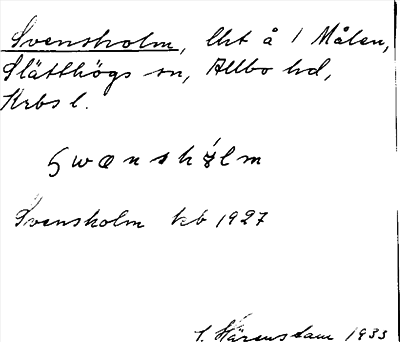 Svensholm, lht å 1 Målen,
Slätthögs sn, Allbo hd,
Krbs l.
Svensholm kb 1927
Härenstam 1933